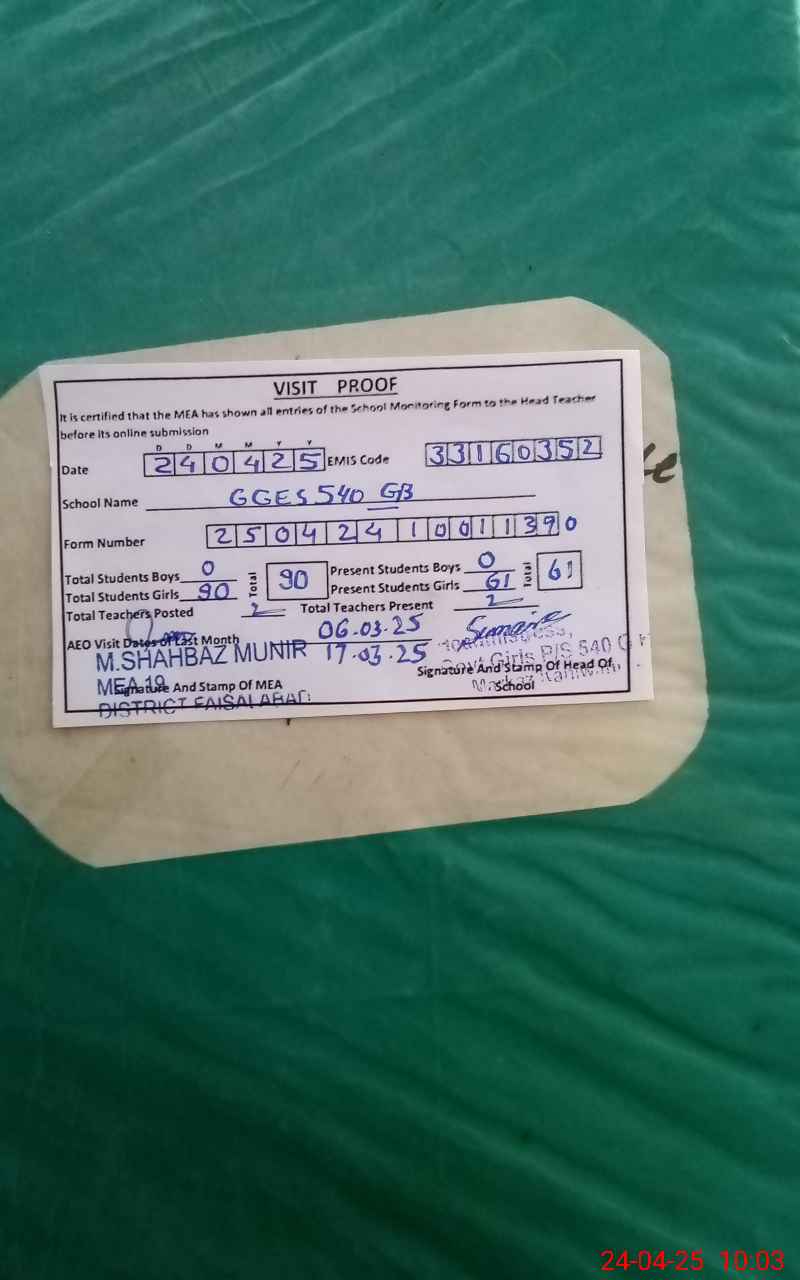 VISIT PROOF
It is certified that the MEA has shown all entries of the School Monitoring Form to the Head Teacher
before its online submission
D D M M Y Y
Date 240425 EMIS Code 33160352
School Name GGES 540 GB
Form Number 25042410011390
Total Students Boys 0 Total 90 Present Students Boys 0 Total 61
Total Students Girls 90 Present Students Girls 61
Total Teachers Posted 2 Total Teachers Present 2
AEO Visit Dates of Last Month 06.03.25
17.03.25
M.SHAHBAZ MUNIR
MEA 19
DISTRICT FAISALABAD
Signature And Stamp Of MEA
Govt Girls P/S 540 G
Signature And Stamp Of Head Of
School
24-04-25 10:03